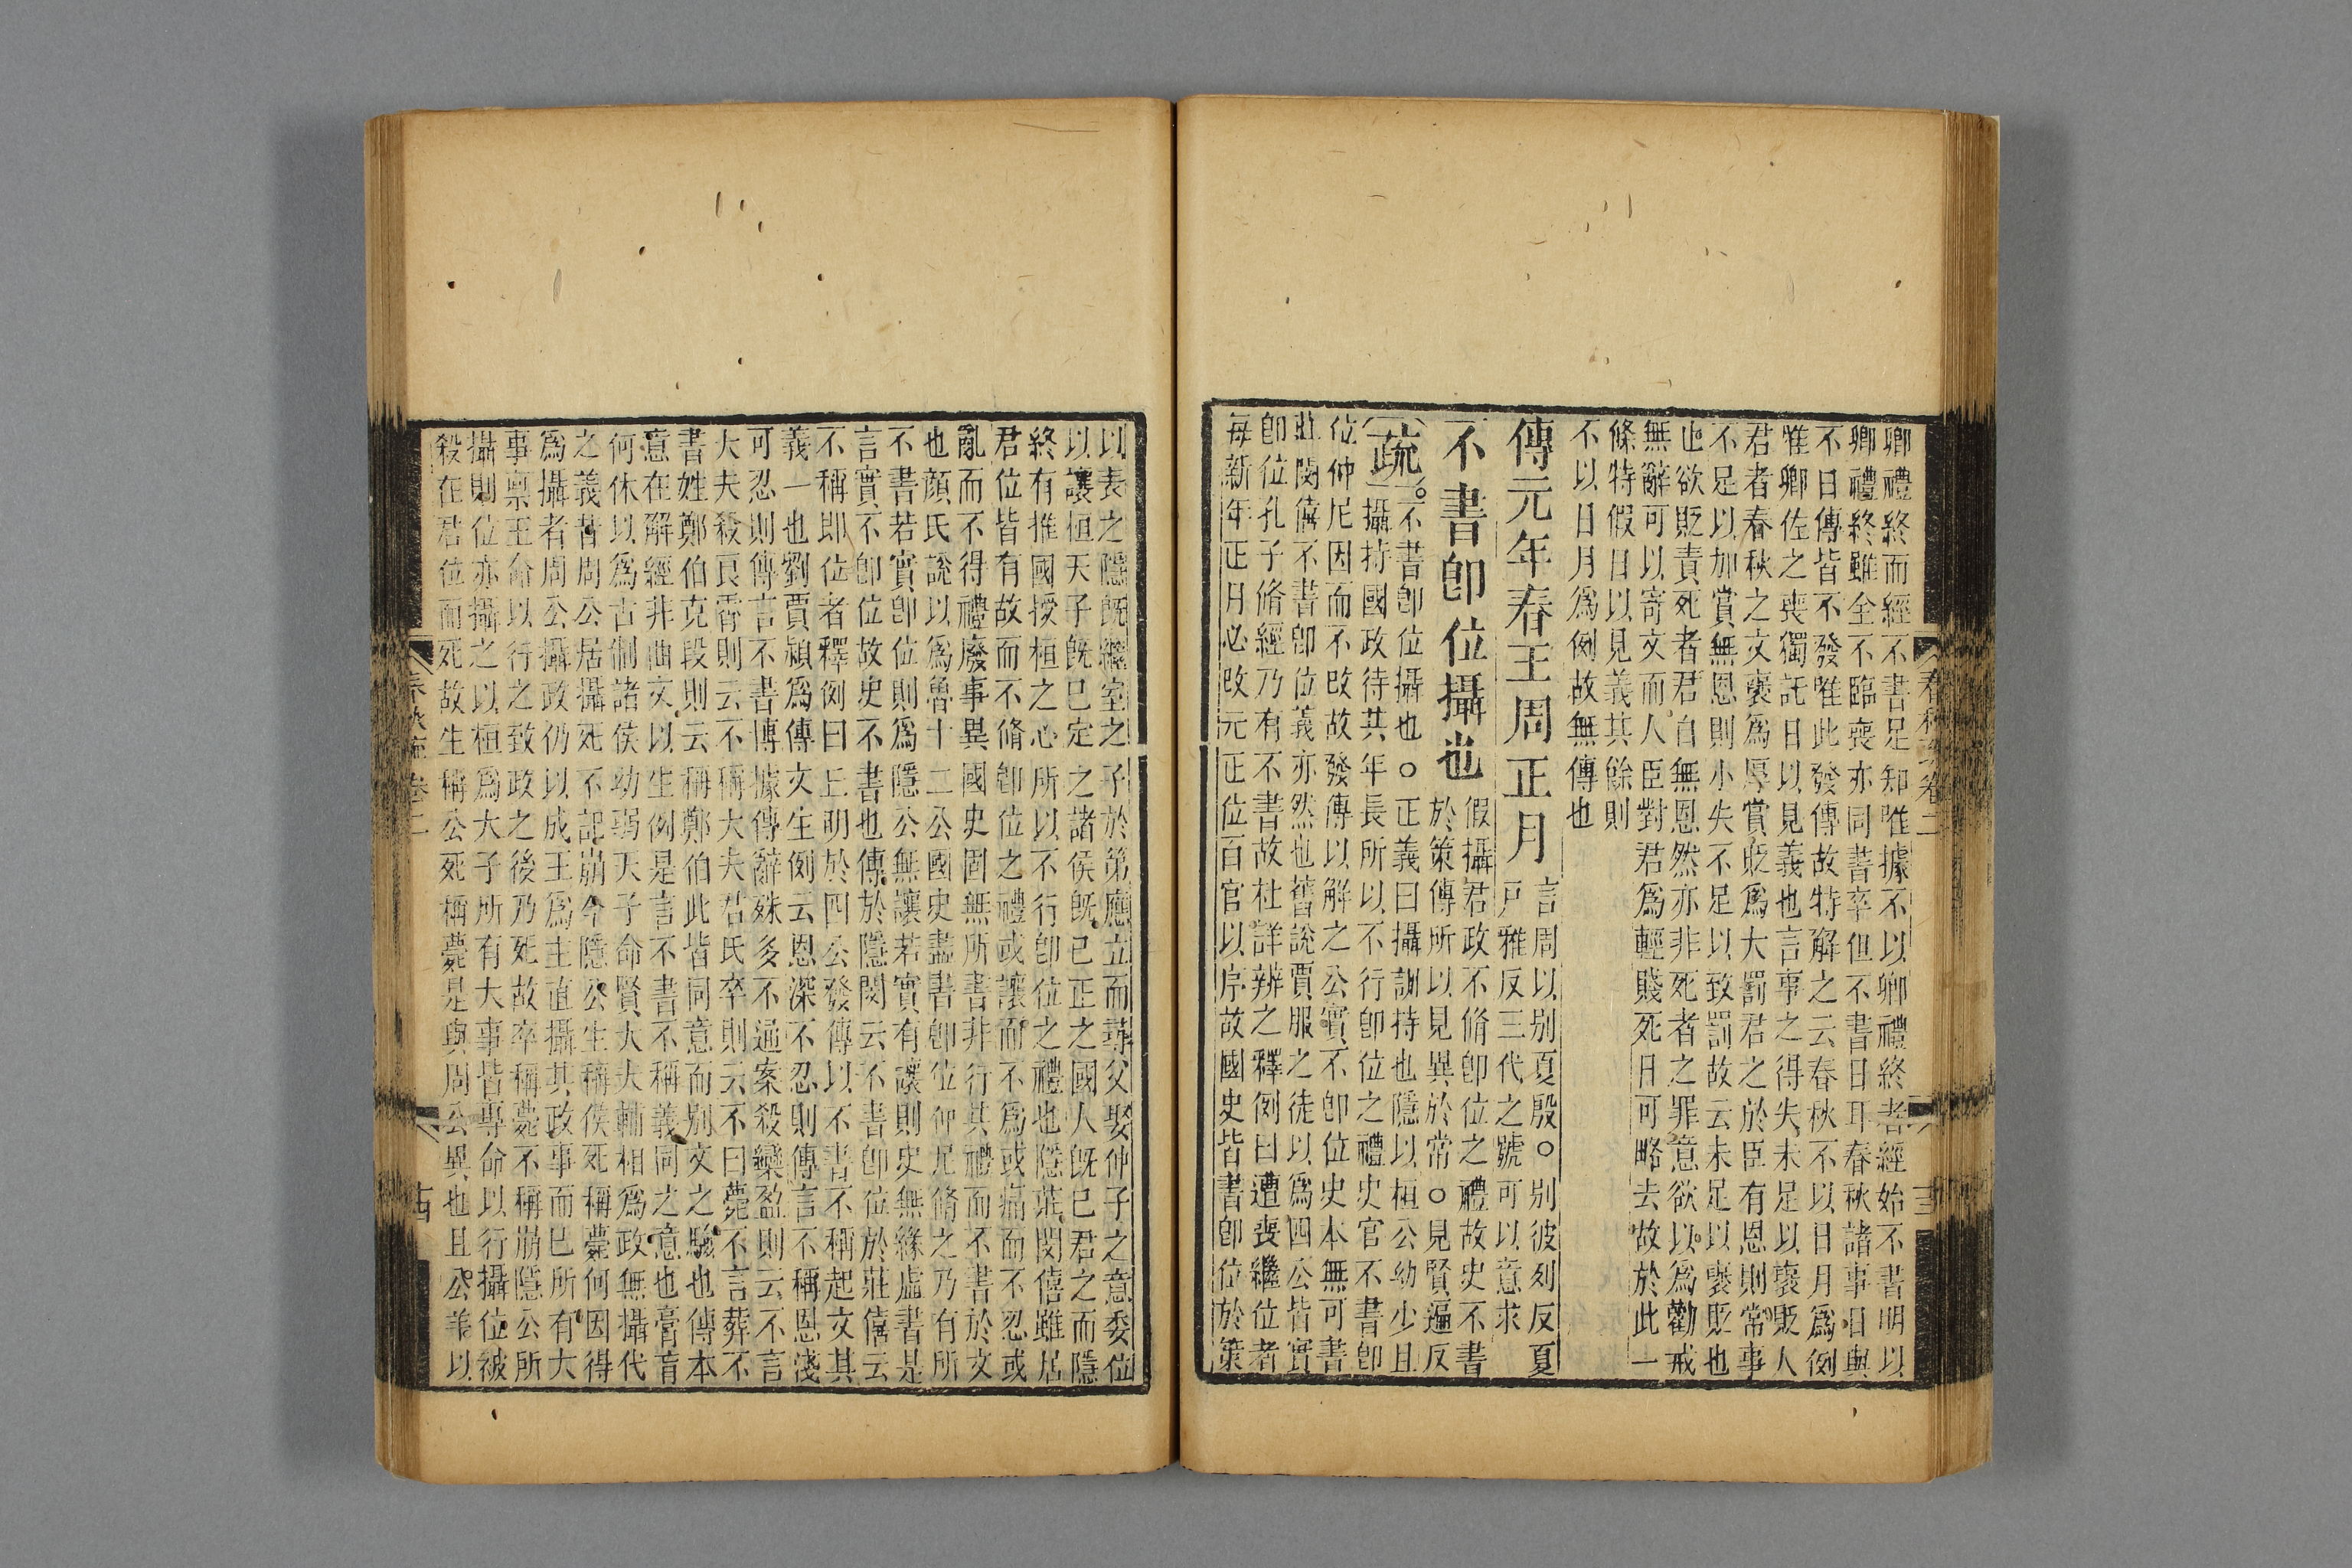 卿禮終而經不書足知唯據不以卿禮終者經始不書明以
卿禮終雖全不臨喪亦同書卒但不書日耳春秋諸事日與
不日傳皆不發唯此發傳故特解之云春秋不以日月爲例
唯卿佐之喪獨託日以見義也言事之得失未足以褒貶人
君者春秋之文褒爲厚賞貶爲大罰君之於臣有恩則常事
不足以加賞無恩則小失不足以致罰故云未足以褒貶也
也欲貶責死者君自無恩然亦非死者之罪意欲以爲勸戒
無辭可以寄文而人臣對君爲輕賤死日可略去故於此一
條特假日以見義其餘則
不以日月爲例故無傳也
傳元年春王周正月
言周以别夏殷○别彼列反夏
戸雅反三代之號可以意求
不書卽位攝也
假攝君政不脩卽位之禮故史不書
於策傳所以見異於常○見賢遍反
疏
不書卽位攝也○正義曰攝訓持也隱以桓公幼少且
攝持國政待其年長所以不行卽位之禮史官不書卽
位仲尼因而不改故發傳以解之公實不卽位史本無可書
莊閔僖不書卽位義亦然也舊說賈服之徒以爲四公皆實
卽位孔子脩經乃有不書故杜詳辨之釋例曰遭喪繼位者
每新年正月必改元正位百官以序故國史皆書卽位於策
以表之隱既繼室之子於第應立而尋父娶仲子之意委位
以讓桓天子既已定之諸侯既已正之國人既已君之而隱
終有推國授桓之心所以不行卽位之禮也隱莊閔僖雖居
君位皆有故而不脩卽位之禮或讓而不爲或痛而不忍或
亂而不得禮廢事異國史固無所書非行其禮而不書於文
也顏氏說以爲魯十二公國史盡書卽位仲尼脩之乃有所
不書若實卽位則爲隱公無讓若實有讓則史無緣虛書是
言實不卽位故史不書也傳於隱閔云不書卽位於莊僖云
不稱即位者釋例曰丘明於四公發傳以不書不稱起文其
義一也劉賈潁爲傳文生例云恩深不忍則傳言不稱恩淺
可忍則傳言不書博據傳辭殊多不通案殺欒盈則云不言
大夫殺良霄則云不稱大夫君氏卒則云不曰薨不言葬不
書姓鄭伯克段則云稱鄭伯此皆同意而别文之驗也傳本
意在解經非曲文以生例是言不書不稱義同之意也膏肓
何休以爲古制諸侯幼弱天子命賢大夫輔相爲政無攝代
之義昔周公居攝死不記崩今隱公生稱侯死稱薨何因得
爲攝者周公攝政仍以成王爲主直攝其政事而已所有大
事稟王命以行之致政之後乃死故卒稱薨不稱崩隱公所
攝則位亦攝之以桓爲大子所有大事皆專命以行攝位被
殺在君位而死故生稱公死稱薨是與周公異也且公羊以
春秋疏卷二